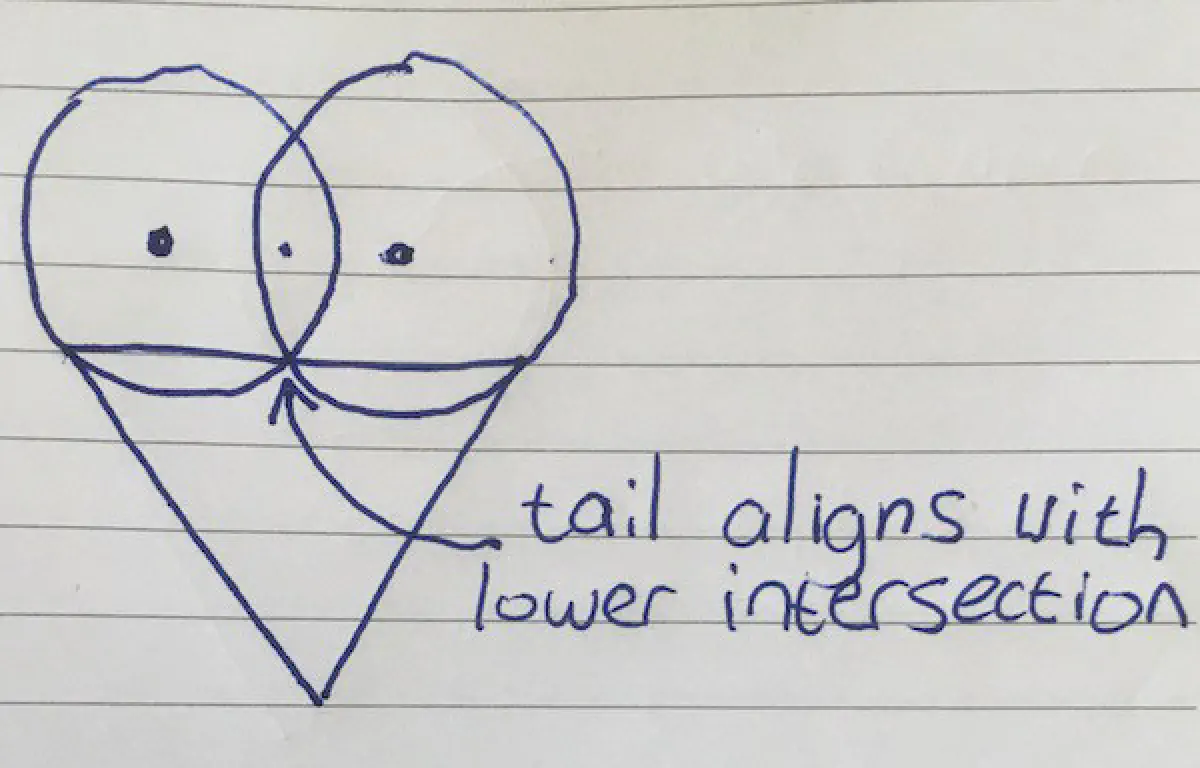 tail aligns with
lower intersection